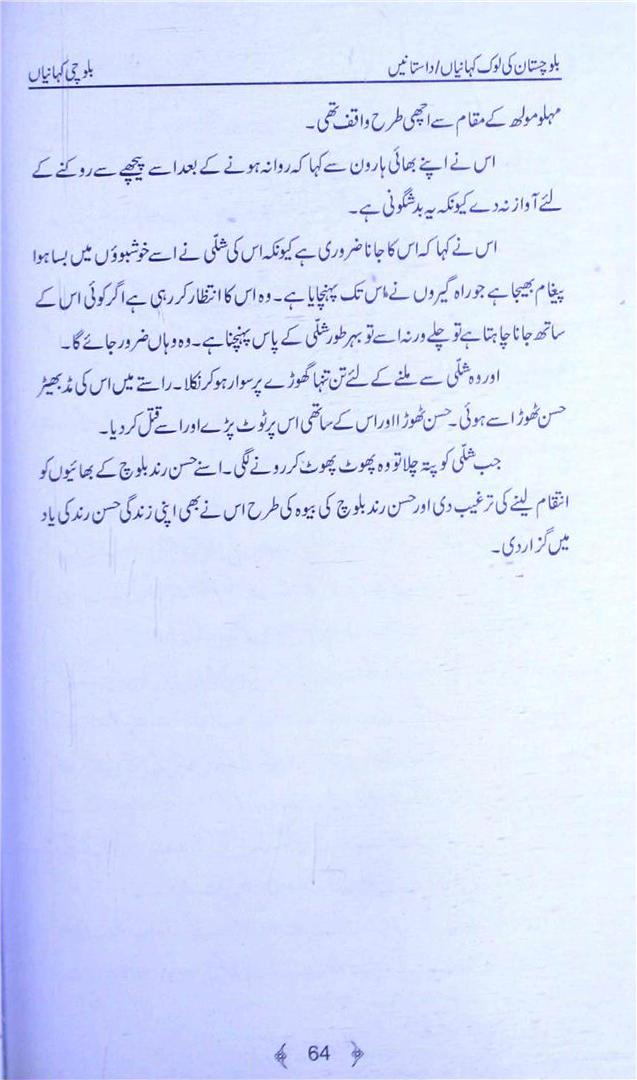 بلوچستان کی لوک کہانیاں/داستانیں بلوچی کہانیاں
مہلو مولھ کے مقام سے اچھی طرح واقف تھی۔
اس نے اپنے بھائی ہارون سے کہا کہ روانہ ہونے کے بعد اسے پیچھے سے روکنے کے
لئے آواز نہ دے کیونکہ یہ بدشگونی ہے۔
اس نے کہا کہ اس کا جانا ضروری ہے کیونکہ اس کی شلّی نے اسے خوشبوؤں میں بسا ہوا
پیغام بھیجا ہے جو راہ گیروں نے اس تک پہنچایا ہے۔ وہ اس کا انتظار کر رہی ہے اگر کوئی اس کے
ساتھ جانا چاہتا ہے تو چلے ورنہ اسے تو بہر طور شلّی کے پاس پہنچنا ہے۔ وہ وہاں ضرور جائے گا۔
اور وہ شلّی سے ملنے کے لئے تن تنہا گھوڑے پر سوار ہو کر نکلا۔ راستے میں اس کی مڈبھیڑ
حسن ٹھوڑا سے ہوئی۔ حسن ٹھوڑا اور اس کے ساتھی اس پر ٹوٹ پڑے اور اسے قتل کر دیا۔
جب شلّی کو پتہ چلا تو وہ پھوٹ پھوٹ کر رونے لگی۔ اسنے حسن رند بلوچ کے بھائیوں کو
انتقام لینے کی ترغیب دی اور حسن رند بلوچ کی بیوہ کی طرح اس نے بھی اپنی زندگی حسن رند کی یاد
میں گزار دی۔
64